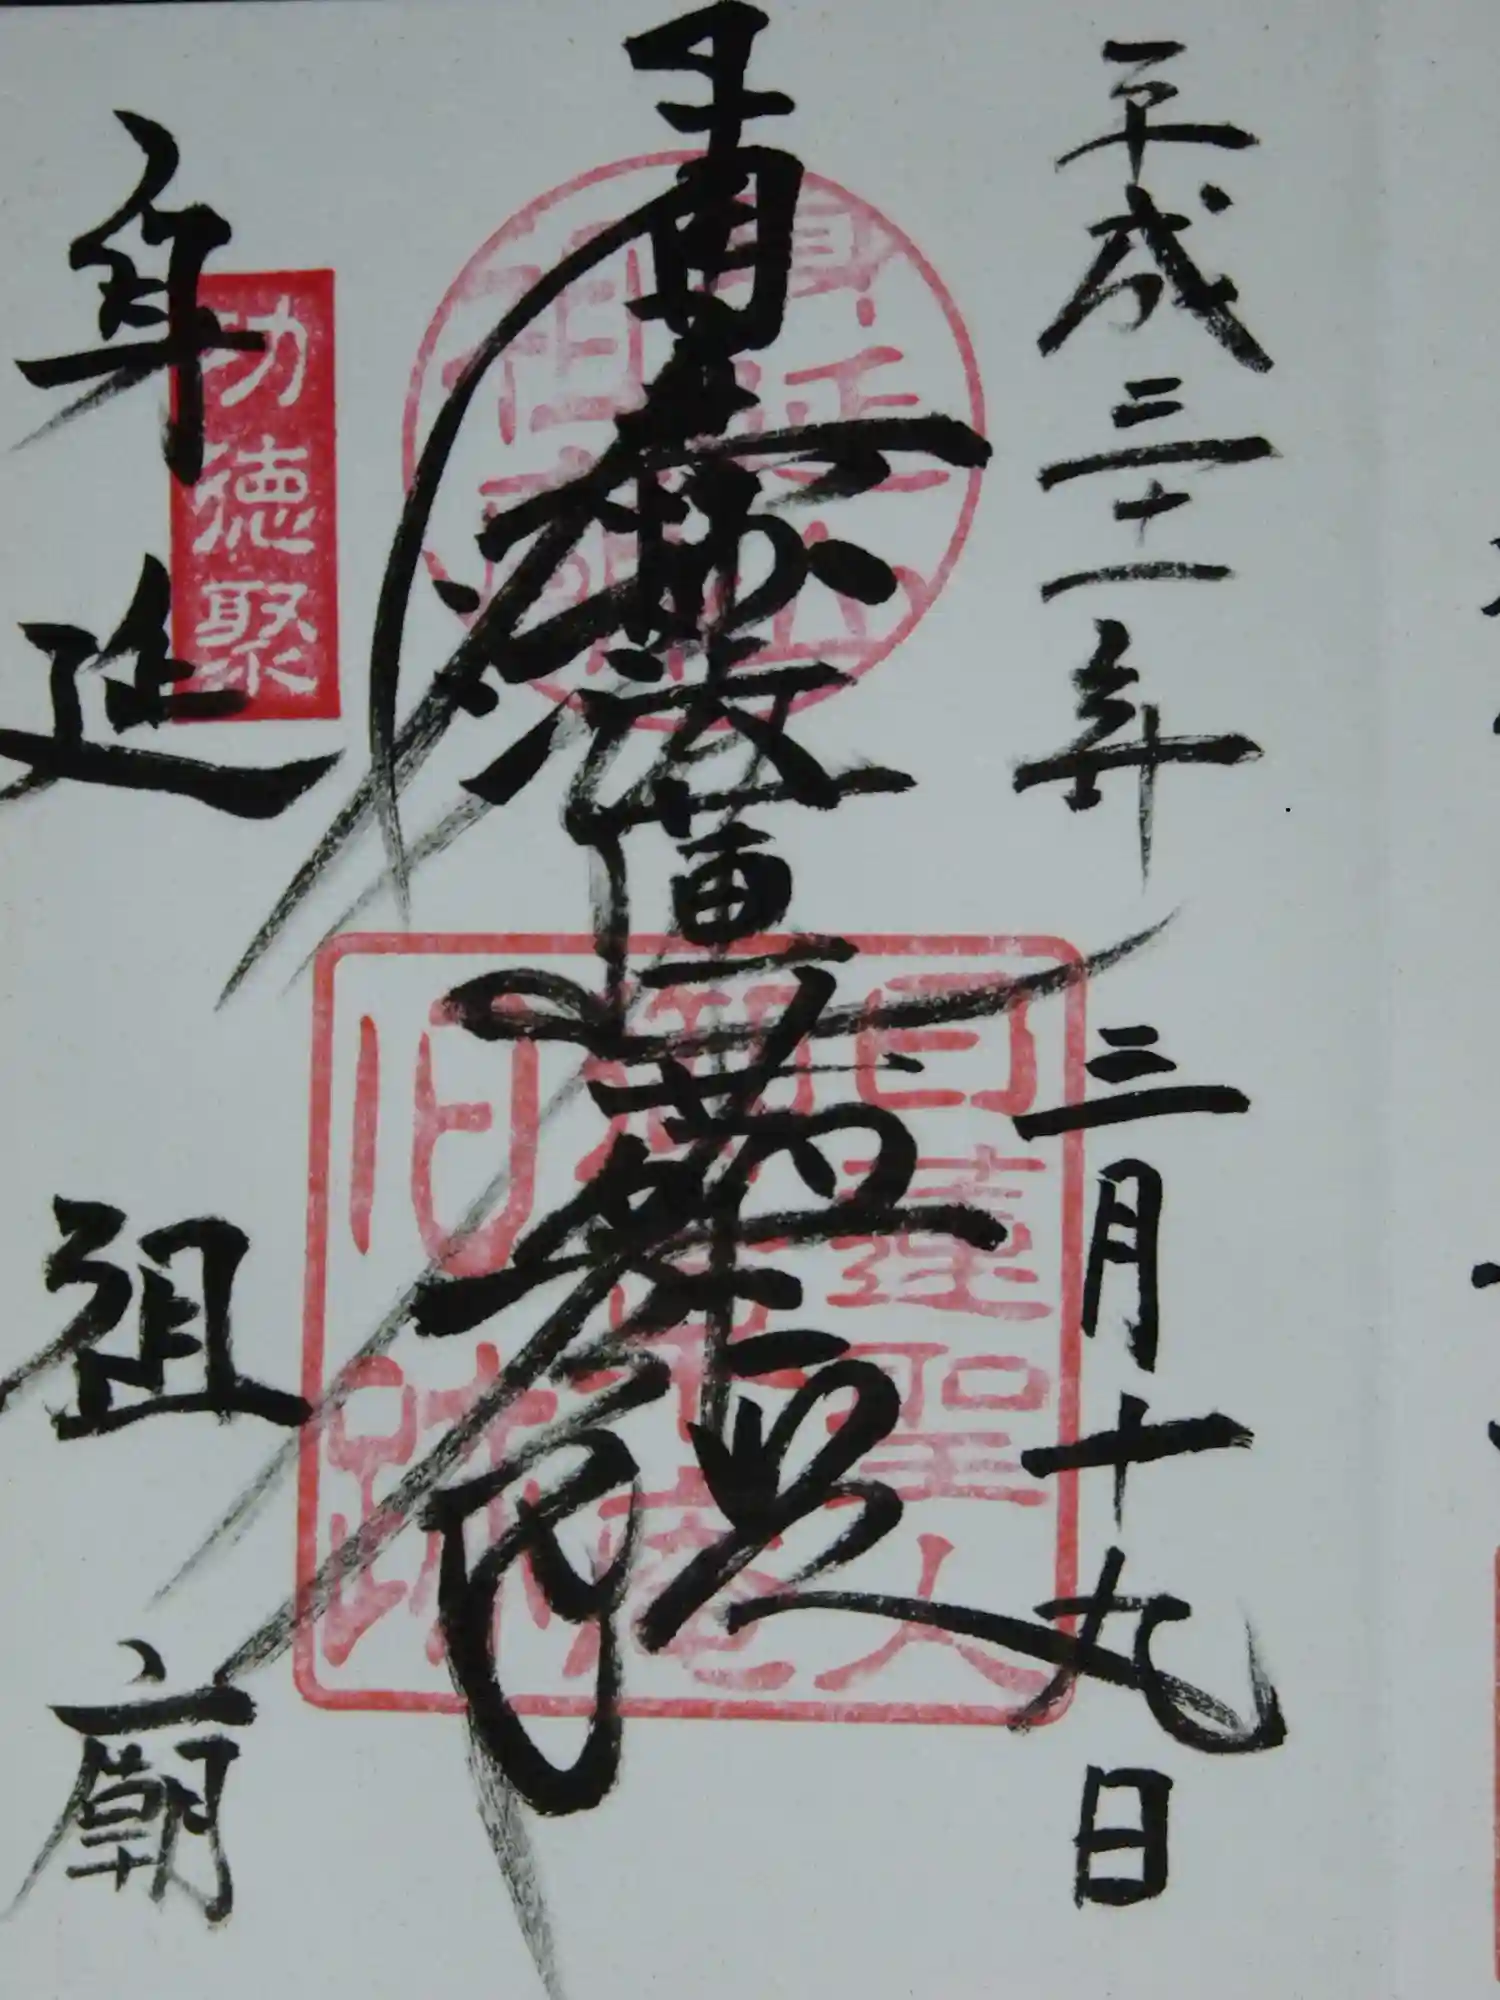 平成三十一年三月十九日
南無妙法蓮華経
身延山
祖廟
日蓮聖人
旧跡
身延 祖廟
功徳聚